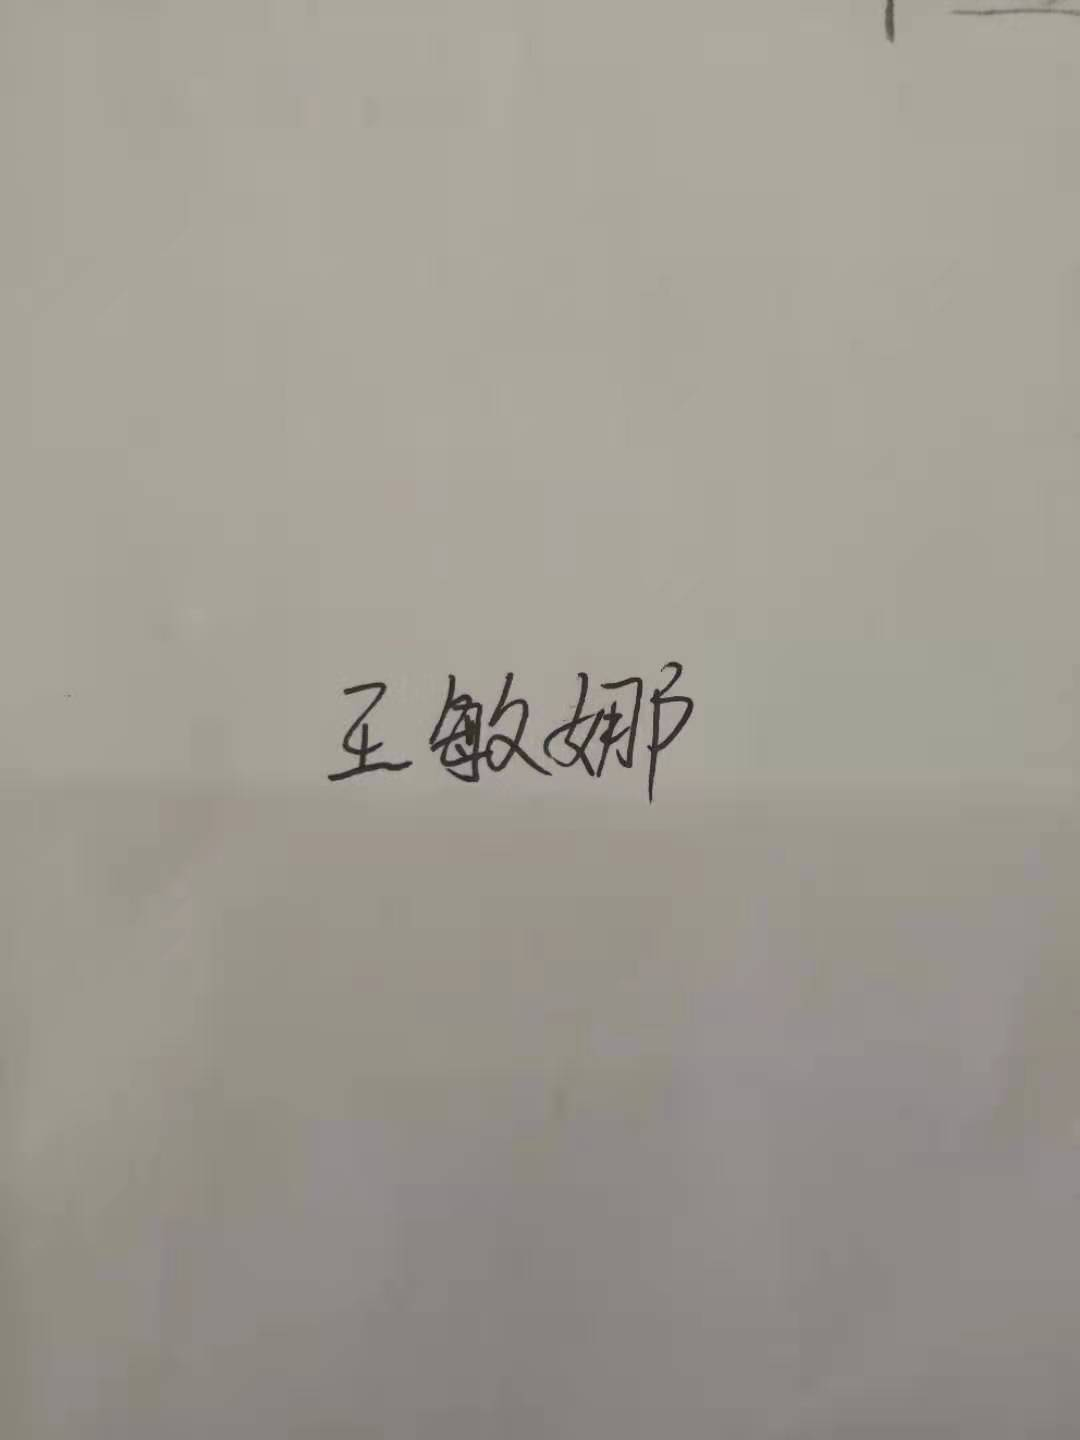 王敏娜